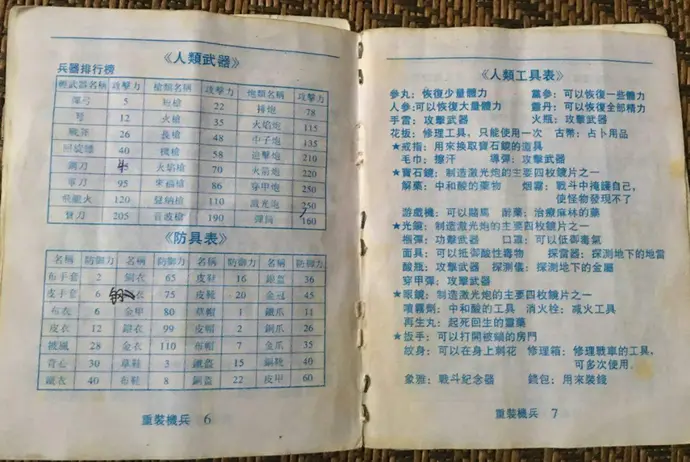 《人類武器》
兵器排行榜
輕武器名稱 攻擊力 槍類名稱 攻擊力 炮類名稱 攻擊力
彈弓 5 短槍 22 排炮 78
弩 12 火槍 35 火焰炮 115
戰斧 26 長槍 48 中子炮 135
回旋鏢 40 機槍 58 追擊炮 210
鋼刀 45 火焰槍 70 火箭炮 220
軍刀 95 來福槍 86 穿甲炮 250
集龍火 120 聲納槍 110 激光炮 250
寶刀 205 音波槍 190 彈筒 160
《防具表》
名稱 防御力 名稱 防御力 名稱 防御力 名稱 防御力
布手套 2 銅衣 65 皮鞋 16 銀盔 36
皮手套 6 鋼衣 75 皮靴 20 金冠 45
布衣 6 金甲 80 草帽 1 鐵爪 11
皮衣 12 鎧衣 99 皮帽 2 銅爪 26
披風 28 金衣 110 布帽 7 金爪 35
背心 30 草鞋 3 鐵盔 15 鋼靴 40
鐵衣 40 布鞋 8 銅盔 22 皮甲 60
重裝機兵 6
《人類工具表》
參丸：恢復少量體力 黨參：可以恢復一些體力
人參：可以恢復大量體力 靈丹：可以恢復全部精力
手雷：攻擊武器 火瓶：攻擊武器
花扳：修理工具，只能使用一次 古幣：占卜用品
★戒指：用來換取寶石鏡的道具
毛巾：擦汗 導彈：攻擊武器
★寶石鏡：制造激光炮的主要四枚鏡片之一
解藥：中和酸的藥物 烟霧：戰斗中掩護自己，
使怪物發現不了
游戲機：可以賭馬 耐藥：治療麻林的藥
★光鏡：制造激光炮的主要四枚鏡片之一
燒彈：功擊武器 口罩：可以低御毒氣
面具：可以抵御酸性毒物 探雷器：探測地下的地雷
酸瓶：攻擊武器 探測儀：探測地下的金屬
穿甲彈：攻擊武器
★眼鏡：制造激光炮的主要四枚鏡片之一
噴霧劑：中和酸的工具 消火栓：滅火工具
再生丸：起死回生的靈藥
★扳手：可以打開被鎖的房門
紋身：可以在身上刺花 修理箱：修理戰車的工具，
可多次使用．
象雅：戰斗紀念器 錢包：用來裝錢
重裝機兵 7